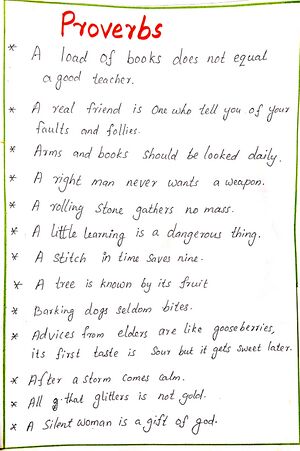 Proverbs
* A load of books does not equal
a good teacher.
* A real friend is one who tell you of your
faults and follies.
* Arms and books should be looked daily.
* A right man never wants a weapon.
* A rolling stone gathers no mass.
* A little learning is a dangerous thing.
* A stitch in time saves nine.
* A tree is known by its fruit
* Barking dogs seldom bites.
* Advices from elders are like gooseberries,
its first taste is sour but it gets sweet later.
* After a storm comes calm.
* All that glitters is not gold.
* A silent woman is a gift of god.